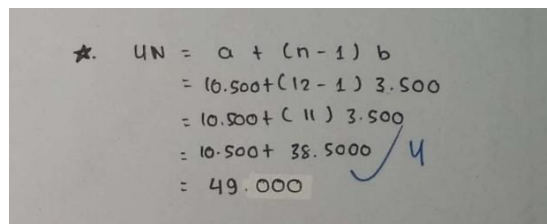 ☆. UN = a + (n - 1) b
= 10.500 + (12 - 1) 3.500
= 10.500 + (11) 3.500
= 10.500 + 38.5000 4
= 49.000